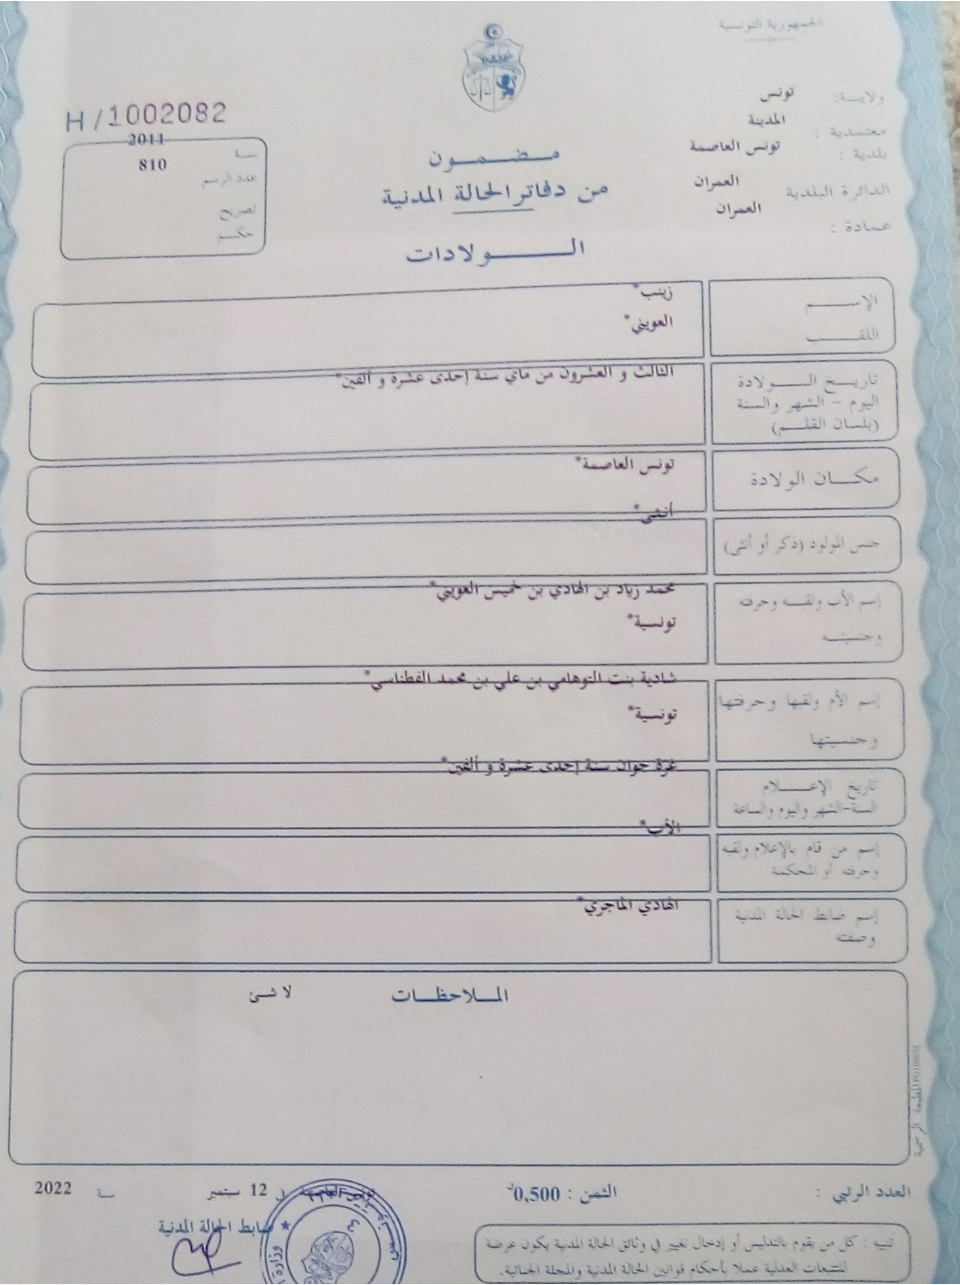 الجمهورية التونسية
ولاية: تونس
معتمدية : المدينة
بلدية : تونس العاصمة
الدائرة البلدية العمران
عمادة : العمران
H/1002082
سنة 2011
عدد الرسم 810
تصريح
حكم
مضمون
من دفاتر الحالة المدنية
الولادات
الإسم زينب*
اللقب العويني*
تاريخ الولادة الثالث و العشرون من ماي سنة إحدى عشرة و ألفين*
اليوم - الشهر والسنة
(بلسان القلم)
مكان الولادة تونس العاصمة*
جنس المولود (ذكر أو أنثى) أنثى*
إسم الأب ولقبه وحرفته محمد زياد بن الهادي بن خميس العويني*
وجنسيته تونسية*
إسم الأم ولقبها وحرفتها شادية بنت التوهامي بن علي بن محمد الفطناسي*
وجنسيتها تونسية*
تاريخ الإعلام غرة جوان سنة إحدى عشرة و ألفين*
السنة-الشهر واليوم والساعة
إسم من قام بالإعلام ولقبه الأب*
وحرفته أو المحكمة
إسم ضابط الحالة المدنية الهادي الماجري*
وصفته
الملاحظات لا شئ
المطبعة الرسمية
العدد الرتبي :
الثمن : 0,500د
تونس العاصمة في 12 سبتمبر سنة 2022
ضابط الحالة المدنية
تنبيه : كل من يقوم بالتدليس أو إدخال تغيير في وثائق الحالة المدنية يكون عرضة
للتتبعات العدلية عملا بأحكام قوانين الحالة المدنية والمجلة الجنائية.